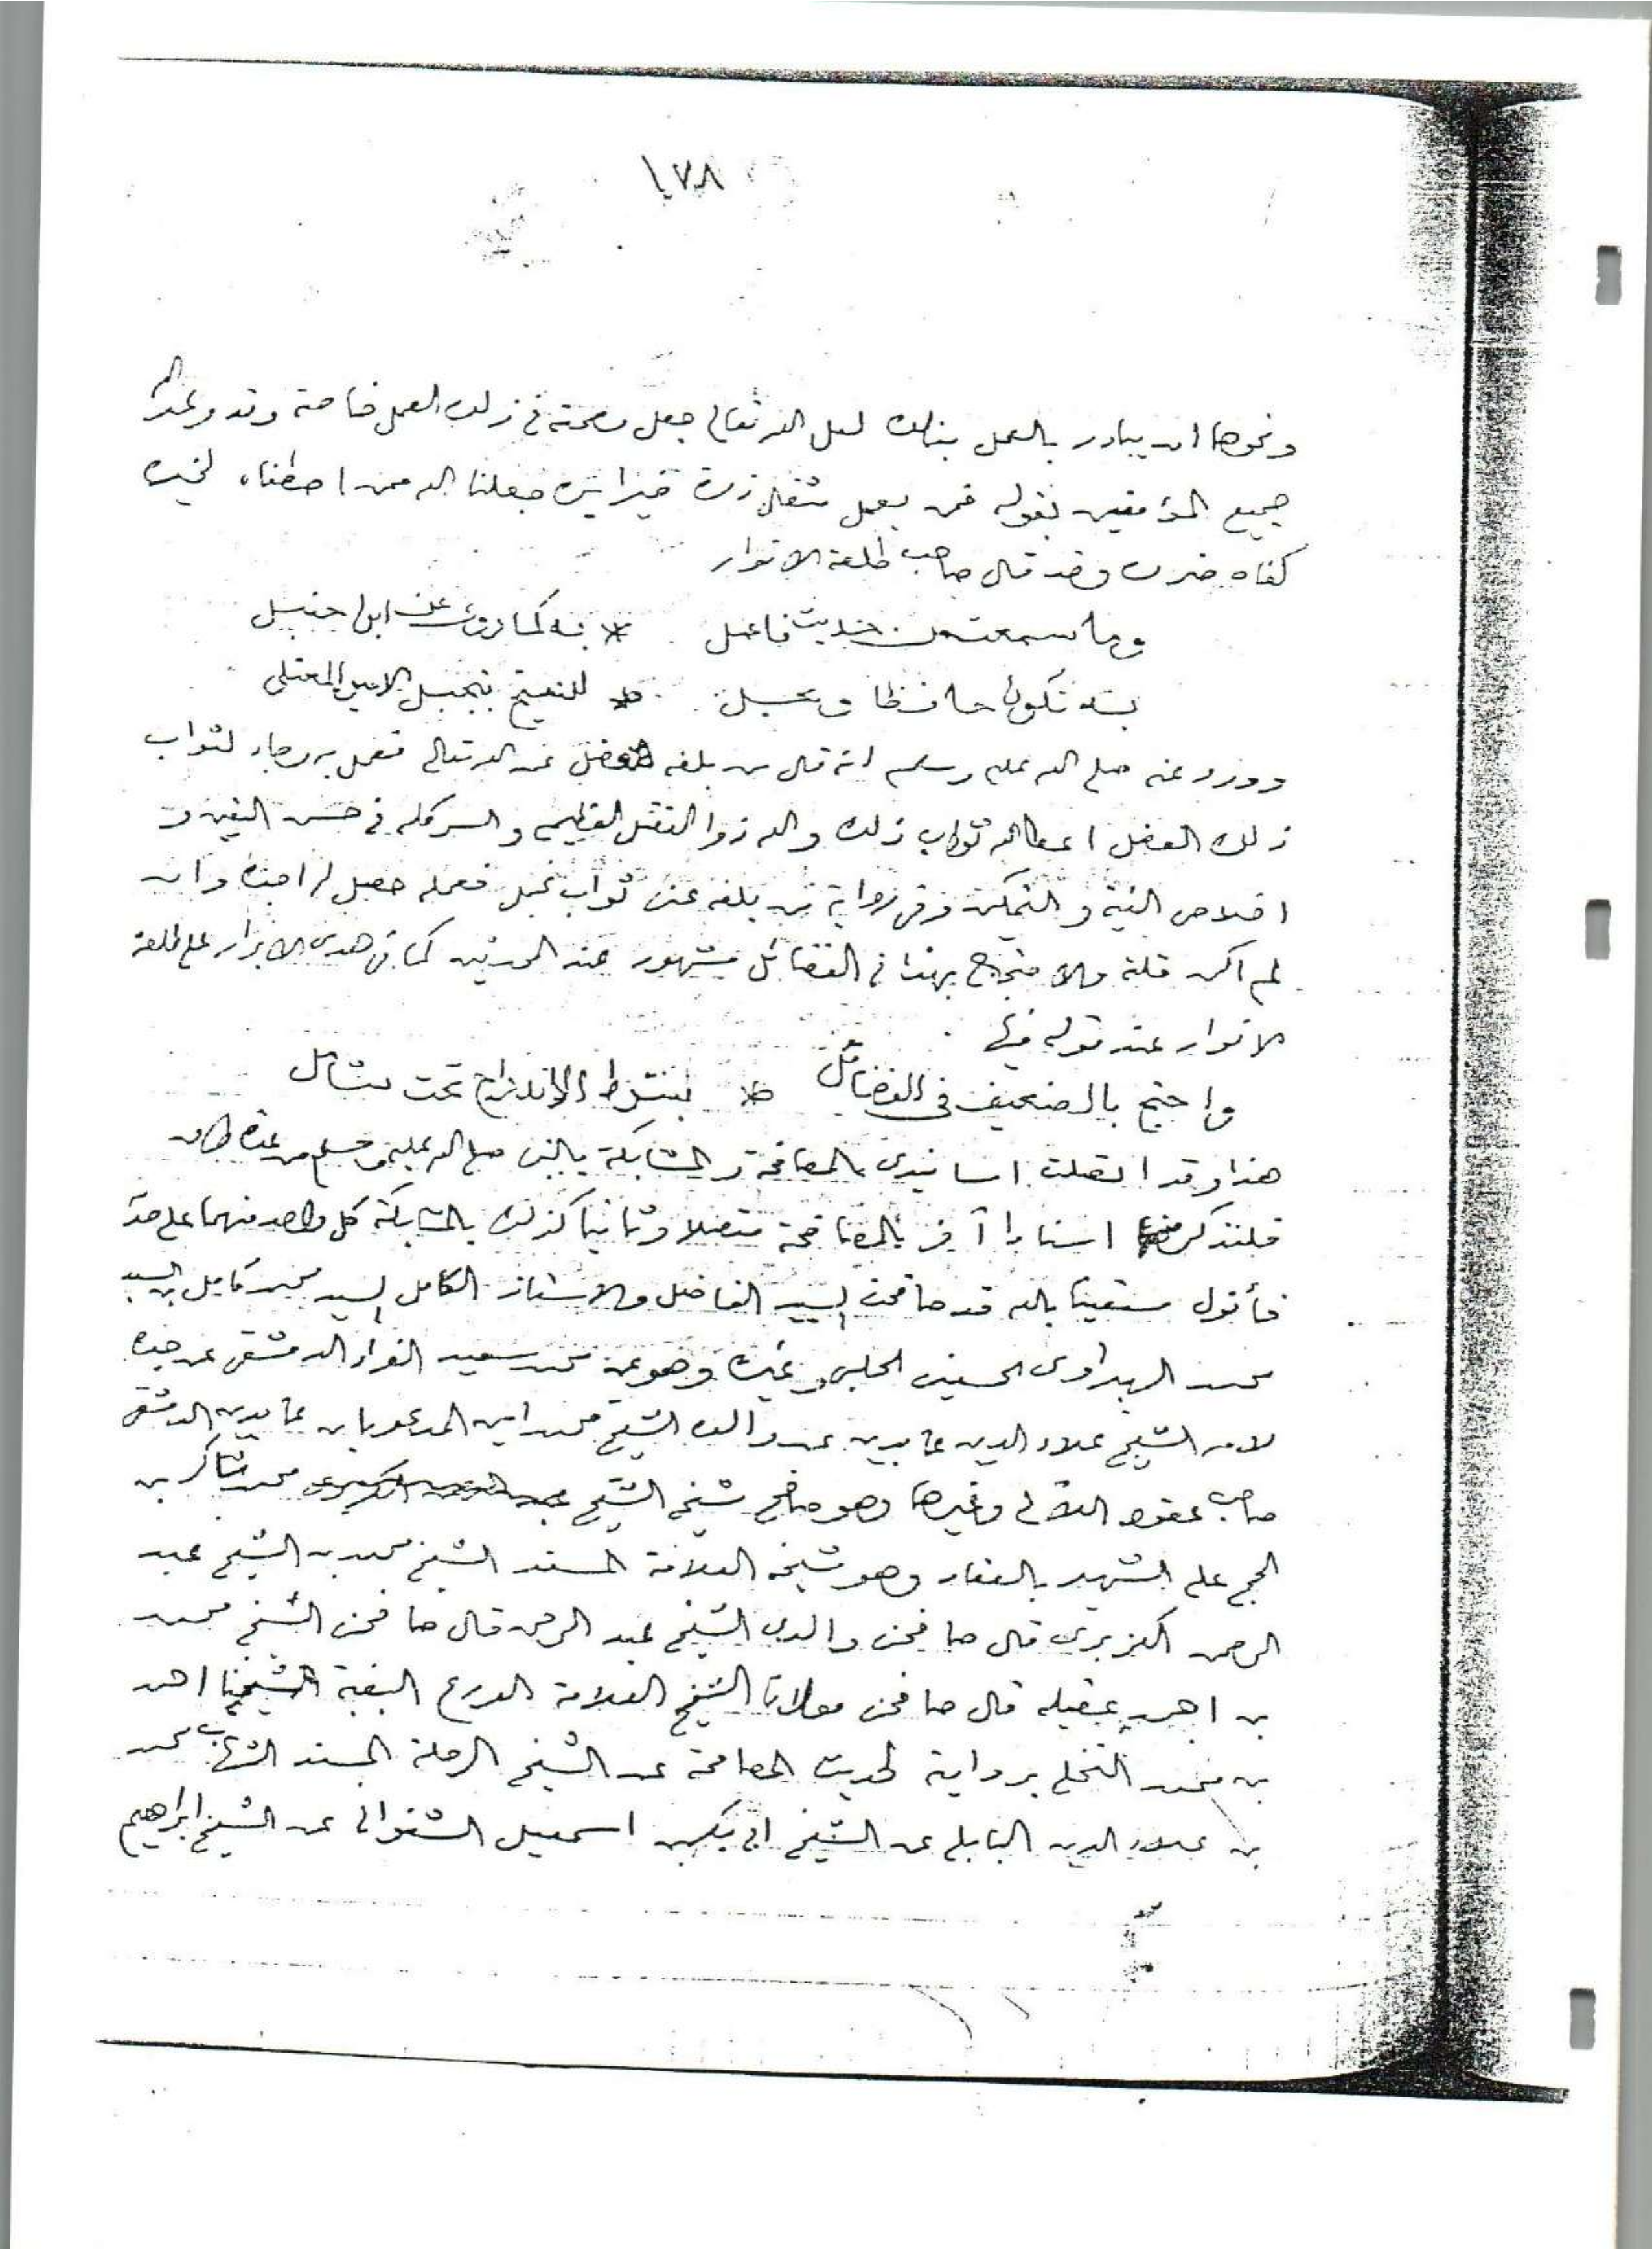 ١٧٨
ونحوها ان يبادر بالعمل بذلك لعل الله تعالى جعل رحمته في ذلك العمل خاصة وقد وعد الله
جميع المؤمنين بقوله فمن يعمل مثقال ذرة خيرا يره جعلنا الله ممن اصطفاه لخيره
كفاه ضره وقد قال صاحب طلعة الانوار
وما سمعت من حديث فاعمل * به كما روى عن ابن حنبل
به تكون حافظا وبجل * للشيخ تبجيل الامير المعتلى
وورد عنه صلى الله عليه وسلم انه قال من بلغه فضل عن الله تعالى فعمل به رجاء لثواب
ذلك الفضل اعطاه الله ثواب ذلك والله ذو الفضل العظيم والسر كله في حسن اليقين و
اخلاص النية والتمكين وفي رواية من بلغه عنى ثواب عمل فعمله حصل له اجره وان
لم اكن قلته والاحتجاج بهذا في الفضائل مشهور عند المحدثين كما في هدى الابرار على طلعة
الانوار عند قوله فيها
واحتج بالضعيف في الفضائل * بشرط الاندراج تحت شامل
هذا وقد اتصلت اسانيدى بالمصافحة والمشابكة بالنبى صلى الله عليه وسلم من عدة طرق
فلنذكر منها اسنادا آخر بالمصافحة متصلا وثانيا كذلك بالمشابكة كل واحد منهما على حدة
فأقول مستعينا بالله قد صافحنى السيد الفاضل والاستاذ الكامل السيد محمد كامل بن السيد
محمد الهبراوى الحسينى الحلبى وغيره وهو عن محمد سعيد الفراء الدمشقى عن جده
لامه الشيخ علاء الدين عابدين عن والده الشيخ محمد امين المدعو بابن عابدين الدمشقى
صاحب عقود اللآلى وغيرها وهو صافح شيخه الشيخ محمد شاكر بن
الحج على الشهير بالعقاد وهو شيخه العلامة المسند الشيخ محمد بن الشيخ عبد
الرحمن الكزبرى قال صافحنى والدى الشيخ عبد الرحمن قال صافحنى الشيخ محمد
بن احمد عقيله قال صافحنى مولانا الشيخ العلامة الورع البقية الشيخنا احمد
بن محمد النخلى برواية لحديث المصافحة عن الشيخ الرحلة المسند الشهاب محمد
بن علاء الدين البابلى عن الشيخ ابى بكر بن اسمعيل الشنوانى عن الشيخ ابراهيم